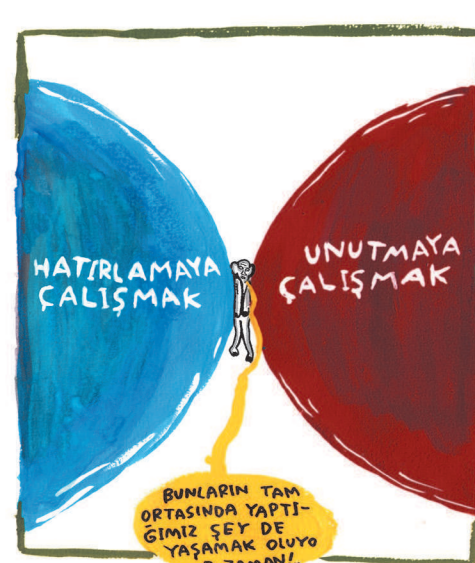 HATIRLAMAYA
ÇALIŞMAK
UNUTMAYA
ÇALIŞMAK
BUNLARIN TAM
ORTASINDA YAPTI-
ĞIMIZ ŞEY DE
YAŞAMAK OLUYO
ZAMAN!